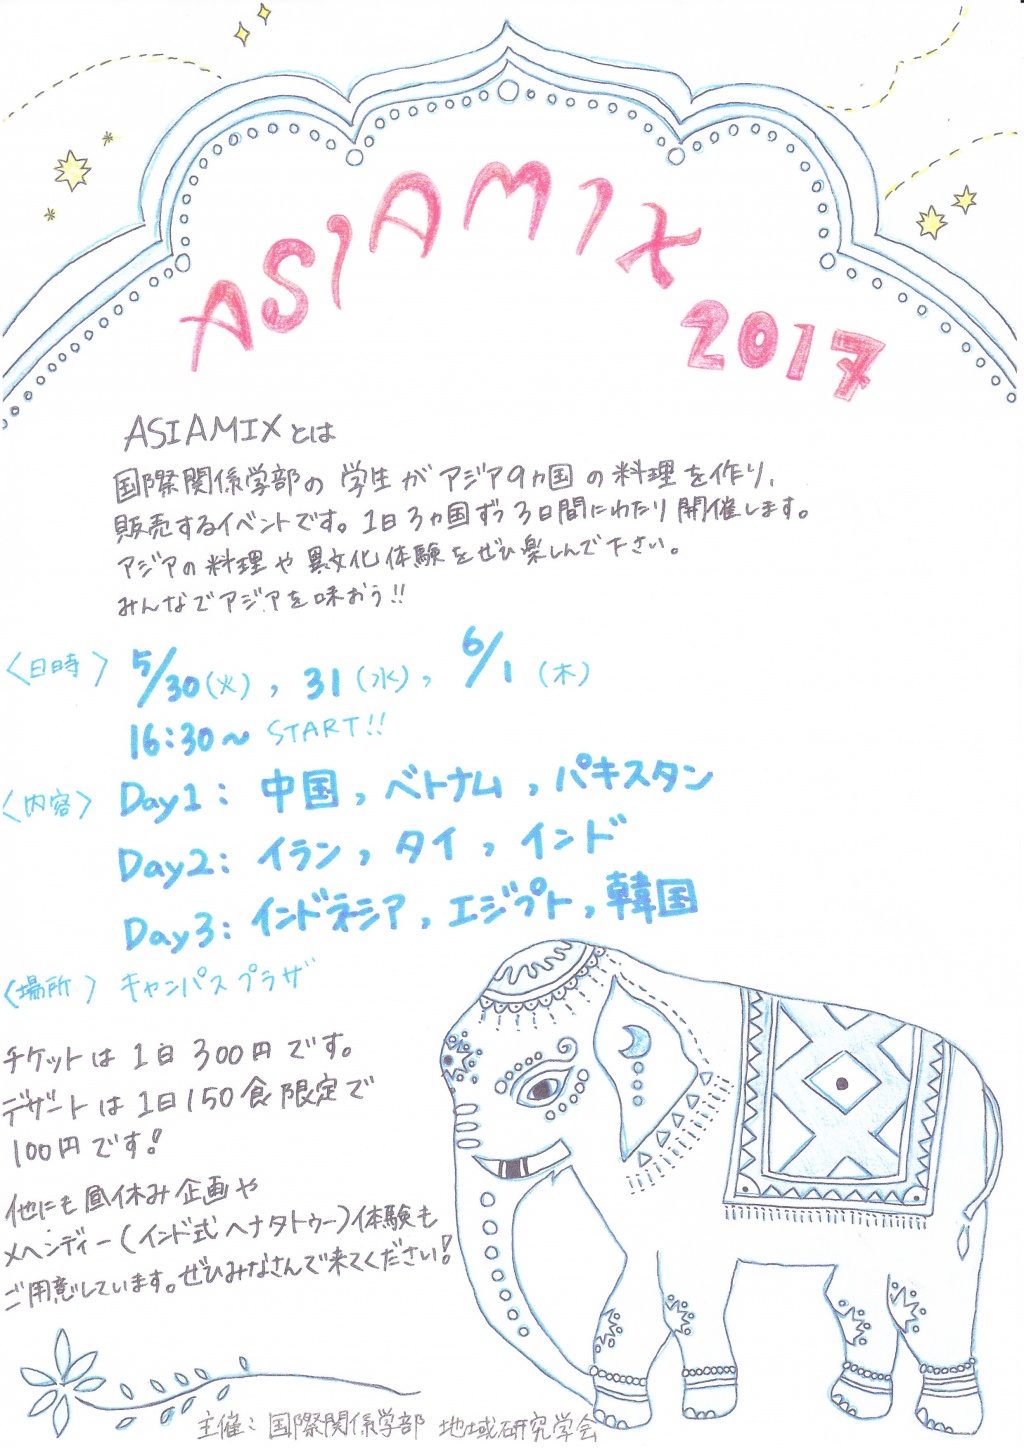 ASIAMIX
2017
ASIAMIXとは
国際関係学部の学生がアジア9ヵ国の料理を作り、
販売するイベントです。1日3ヵ国ずつ3日間にわたり開催します。
アジアの料理や異文化体験をぜひ楽しんで下さい。
みんなでアジアを味おう!!
〈日時〉 5/30(火), 31(水), 6/1(木)
16:30～ START!!
〈内容〉 Day1: 中国, ベトナム, パキスタン
Day2: イラン, タイ, インド
Day3: インドネシア, エジプト, 韓国
〈場所〉 キャンパスプラザ
チケットは1日300円です。
デザートは1日150食限定で
100円です!
他にも昼休み企画や
メヘンディー(インド式ヘナタトゥー)体験も
ご用意しています。ぜひみなさんで来てください!
主催: 国際関係学部 地域研究学会